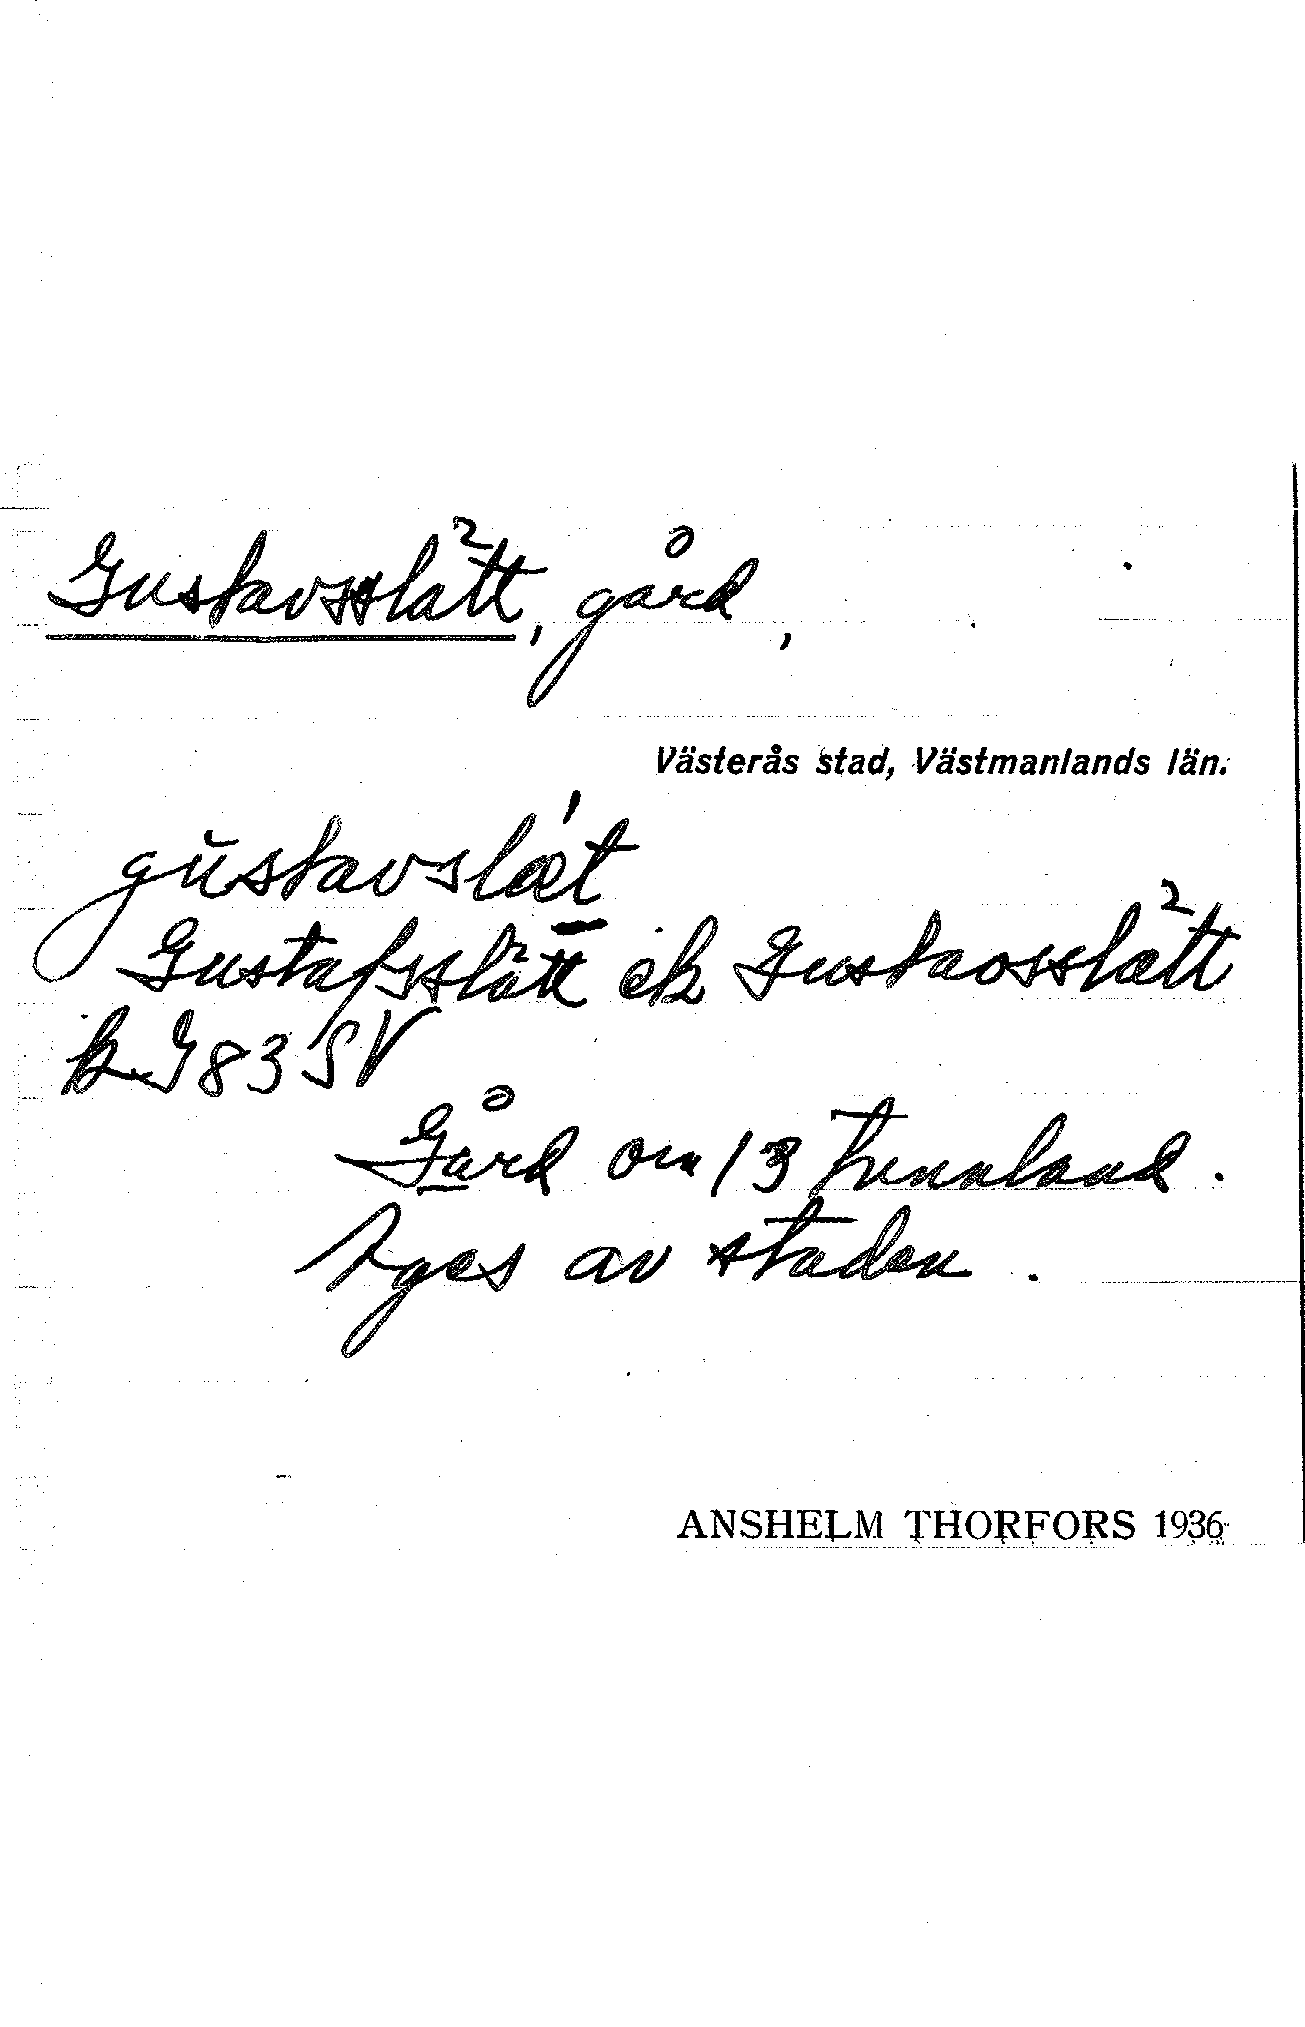 Gustavsslätt, gård,
Västerås stad, Västmanlands län.
gŭstavslæ̀t
Gustafsslätt ek Gustavsslätt
k. J 83 SV
Gård om 13 tunnland.
Äges av staden.
ANSHELM THORFORS 1936